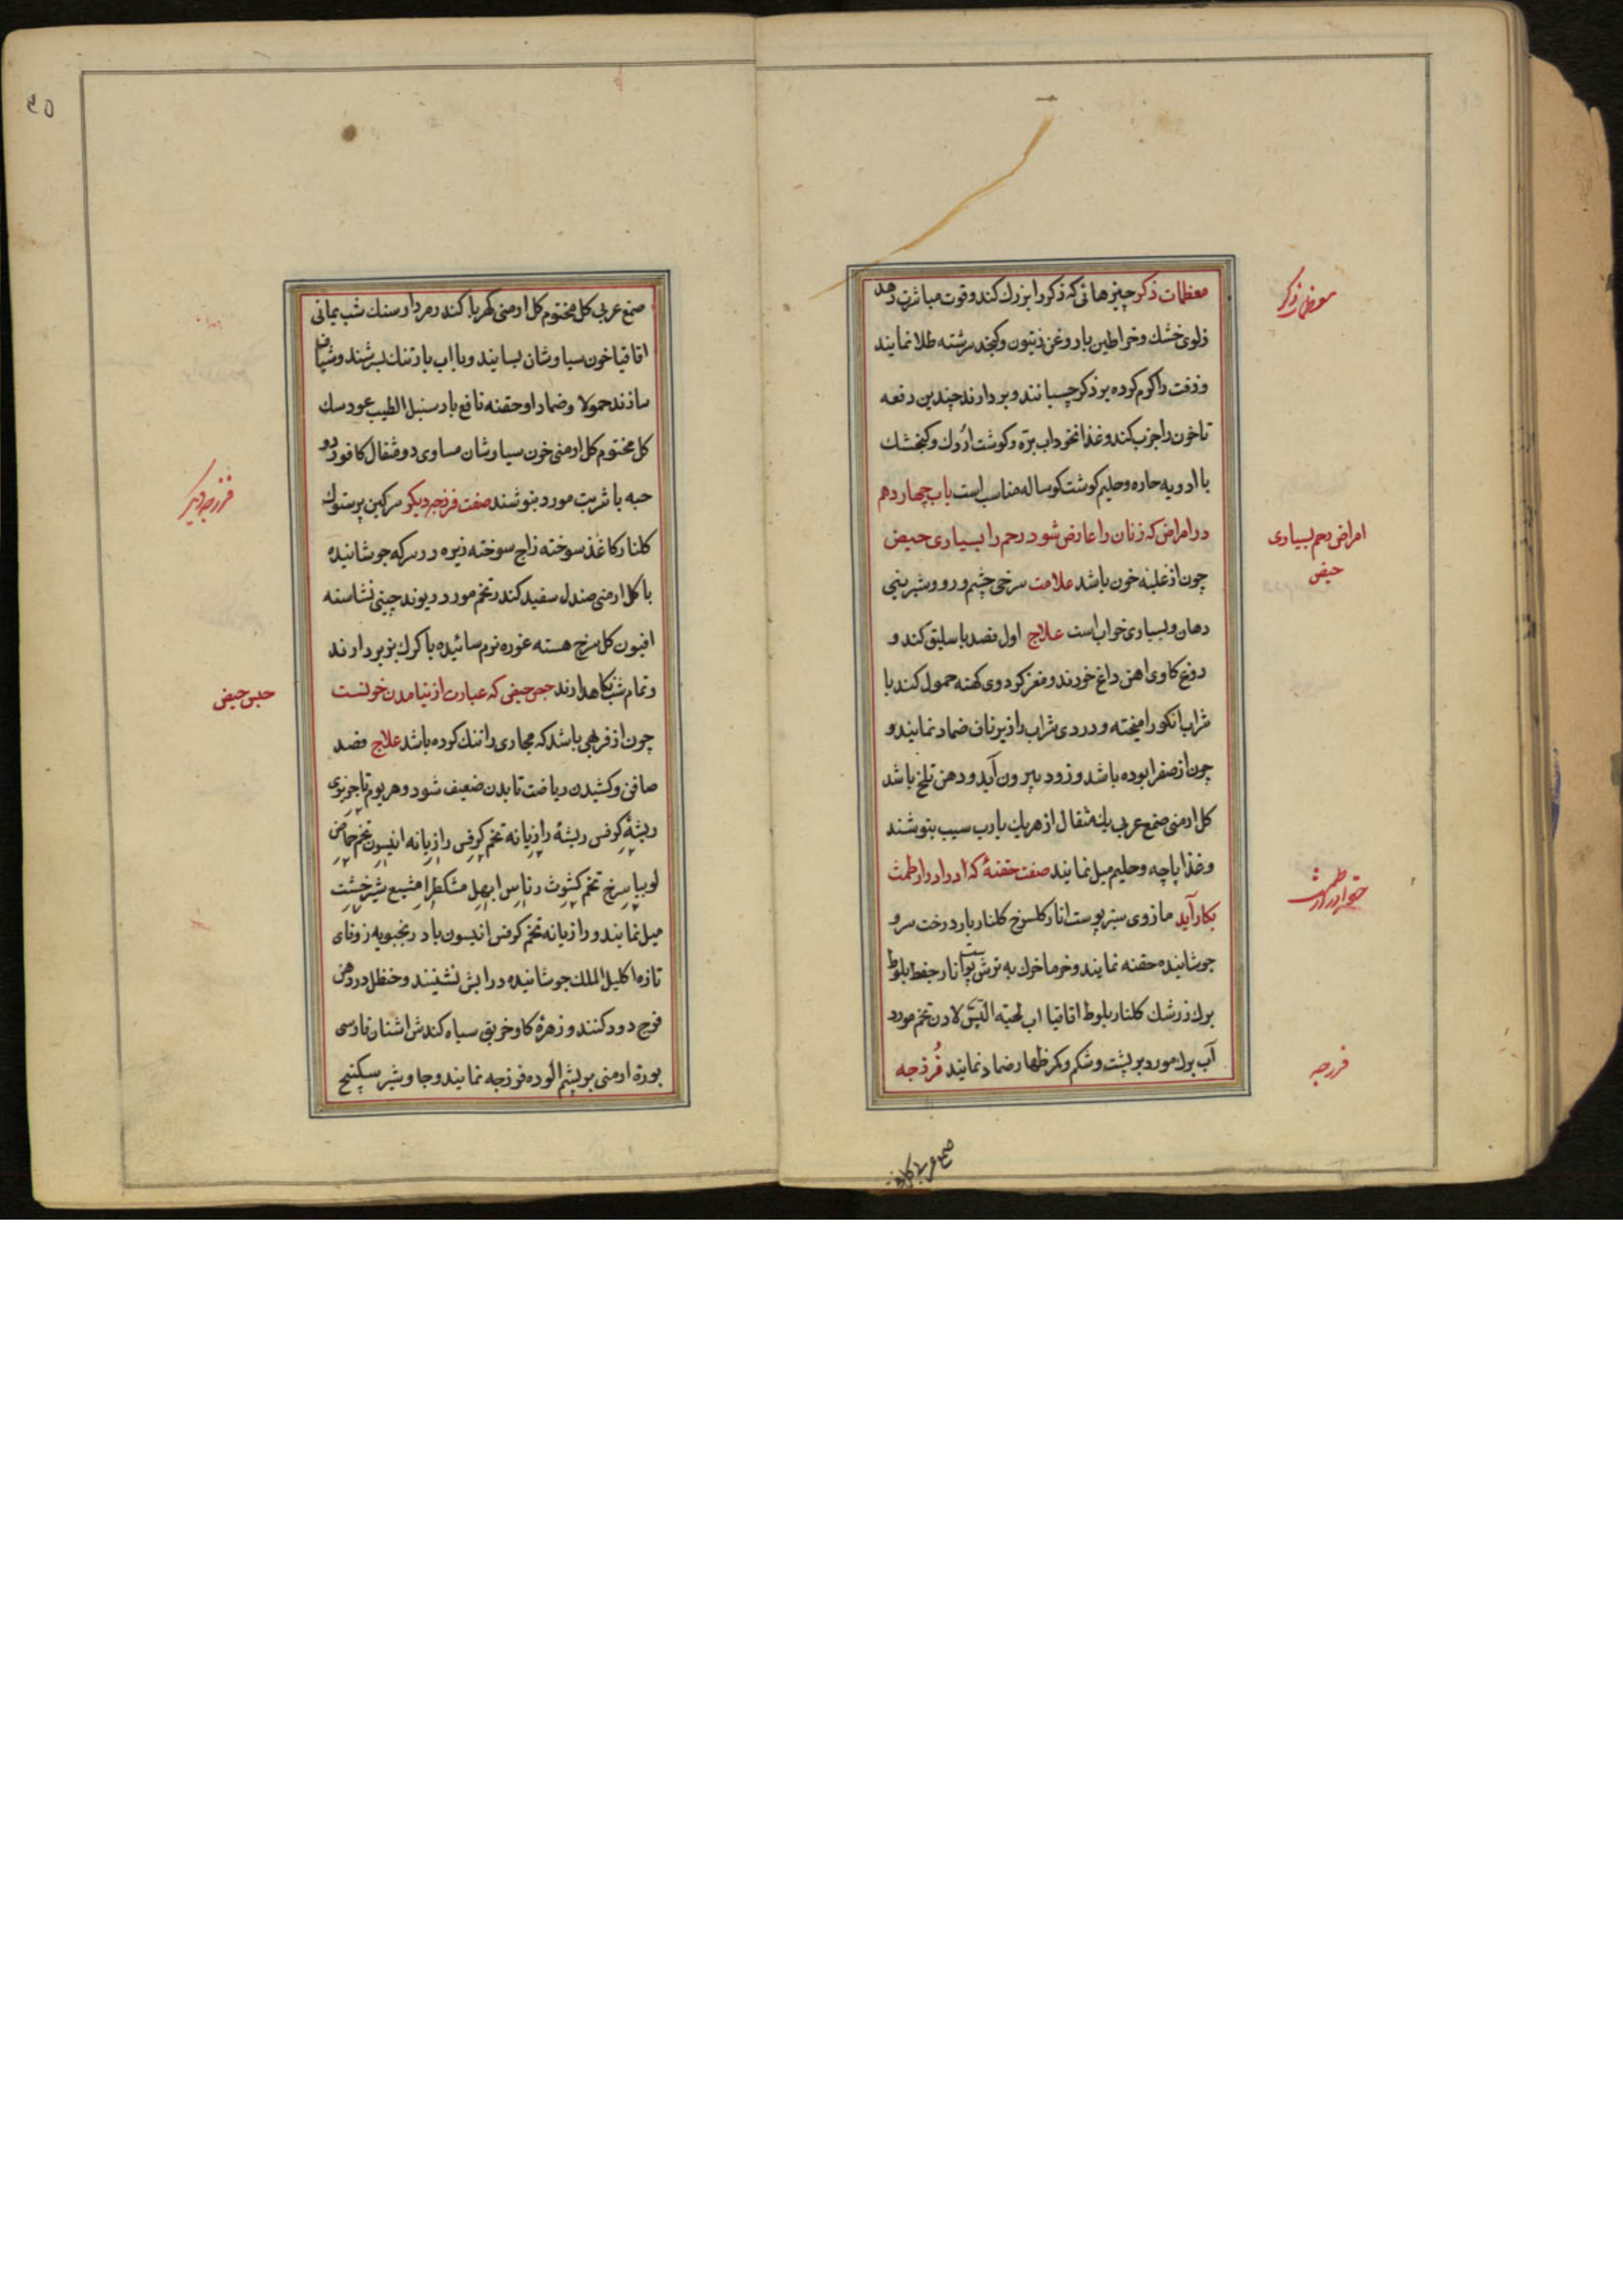 معظمات ذکر چیزهائی که ذکر را بزرك کند و قوت مباشرت دهد
معظمات ذکر
زلوی خشك و خراطین با روغن زیتون و کنجد سرشته طلا نمایند
و زفت را کرم کرده بر ذکر چسبانند و بردارند چندین دفعه
تا خون را جزب کند و غذا نخوداب بره و کوشت اُردك و کنجشك
با ادویه حاره و حلیم کوشت کوساله مناسب است باب چهاردهم
در امراض که زنان را عارض شود رحم را بسیاری حیض
امراض رحم بسیاری
حیض
چون از غلبه خون باشد علامت سرخی چشم و رو و شیرینی
دهان و بسیاری خواب است علاج اول فصد باسلیق کند و
دوغ کاوی اهن داغ خورند و مغز کردوی کهنه حمول کند با
شراب انکور امیخته و دردی شراب را زیر ناف ضماد نمایند و
چون از صفرا بوده باشد و زود بیرون آید و دهن تلخ باشد
کل ارمنی صمغ عربی یك مثقال از هریك با رب سیب بنوشند
و غذا پاچه و حلیم میل نمایند صفت حقنهٔ که ادرار دار طمث
بکار آید مازوی سبز پوست انار کلسرخ کلنار بار درخت سرو
جوشانیده حقنه نمایند و خرما خرك به ترش پوست انار جفط بلوط
برك زرشك کلنار بلوط اقاقیا اب لحیة التیس لادن تخم مورد
آب برك مورد بر پشت و شکم و کمر ظهار ضماد نمایند فُرزجه
فرزجه
صمغ عربی کل
صمغ عربی کل مختوم کل ارمنی کهربا کندر مردار سنك شب یمانی
اقاقیا خون سیاوشان بسایند و با اب بارتنك بسرشند و شیاف
سازند حمولا و ضمادا و حقنه نافع باد سنبل الطیب عود سك
کل مختوم کل ارمنی خون سیاوشان مساوی دو مثقال کافور دو
حبه با شربت مورد بنوشند صفت فرزجه دیکر سرکین پرستوك
فرزجه دیکر
کلنار کاغذ سوخته زاج سوخته زیره در سرکه جوشانیده
با کل ارمنی صندل سفید کندر تخم مورد ریوند چینی نشاسته
افیون کل سرخ هسته غوره نرم سائیده با کرك بز بردارند
و تمام شب نکاهدارند حبس حیض که عبارت از نیامدن خونست
حبس حیض
چون از فربهی باشد که مجاری را تنك کرده باشد علاج فصد
صافن و کشیدن ریاضت تا بدن ضعیف شود و هر یوم
ریشهٔ کرفس ریشهٔ رازیانه تخم کرفس رازیانه انیسون تخم حماض
لوبیا سرخ تخم کثوث رناس ابهل مشکطرا مشیع شیرخشت
میل نمایند و رازیانه تخم کرفس انیسون بادرنجبویه زوفای
تازه اکلیل الملك جوشانیده در ابش نشینند و حنظل در دهن
فرج دود کنند و زهرهٔ کاو خربق سیاه کندش اشنان فارسی
بوره ارمنی بر پشم الوده فرزجه نمایند و جاوشیر سکبینج